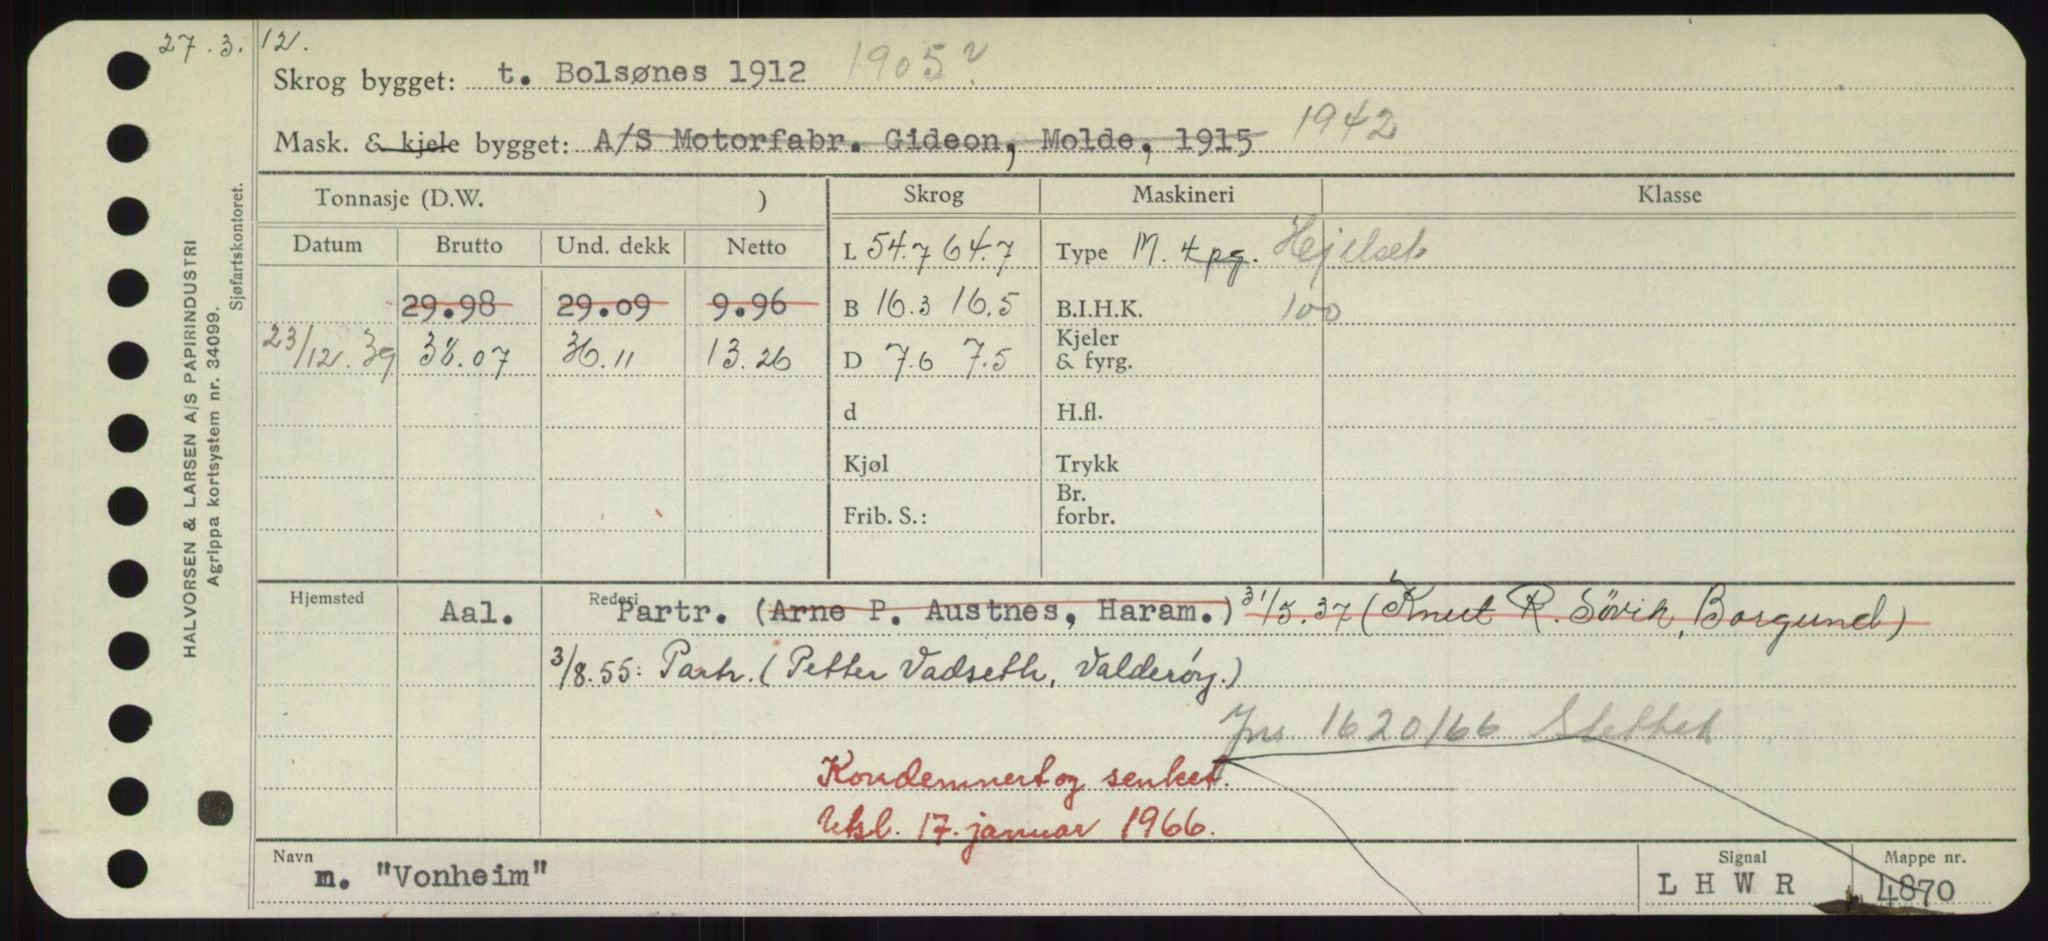 27.3.12.
Skrog bygget: t. Bolsønes 1912 1905?
Mask. & kjele bygget: A/S Motorfabr. Gideon, Molde, 1915 1942
Tonnasje (D.W. ) Skrog Maskineri Klasse
Datum Brutto Und. dekk Netto L 54.7 64.7 Type M. 4pg. Hjelset
29.98 29.09 9.96 B 16.3 16.5 B.I.H.K. 100
23/12.39 38.07 36.11 13.26 D 7.6 7.5 Kjeler
& fyrg.
d H.fl.
Kjøl Trykk
Frib. S.: Br.
forbr.
Hjemsted Aal. Rederi Partr. (Arne P. Austnes, Haram.) 31/5.37 (Knut R. Søvik, Borgund)
3/8.55: Partr. (Petter Vadseth, Valderøy.)
Jnr 1620/66 Slettet
Kondemnert og senket.
Utsl. 17. januar 1966.
Navn m. "Vonheim" Signal LHWR Mappe nr. 4870
HALVORSEN & LARSEN A/S PAPIRINDUSTRI
Agrippa kortsystem nr. 34099.
Sjøfartskontoret.